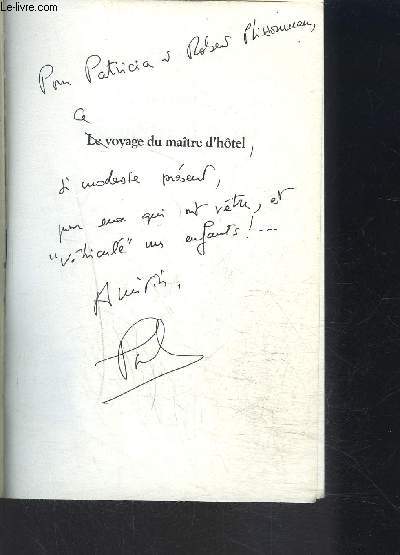 Le-livre.com
Pour Patricia et Robert Plissonneau,
Ce
Le voyage du maître d'hôtel,
si modeste présent,
pour eux qui ont vêtu, et
"véhiculé" nos enfants! ...
Amitiés,
Paul